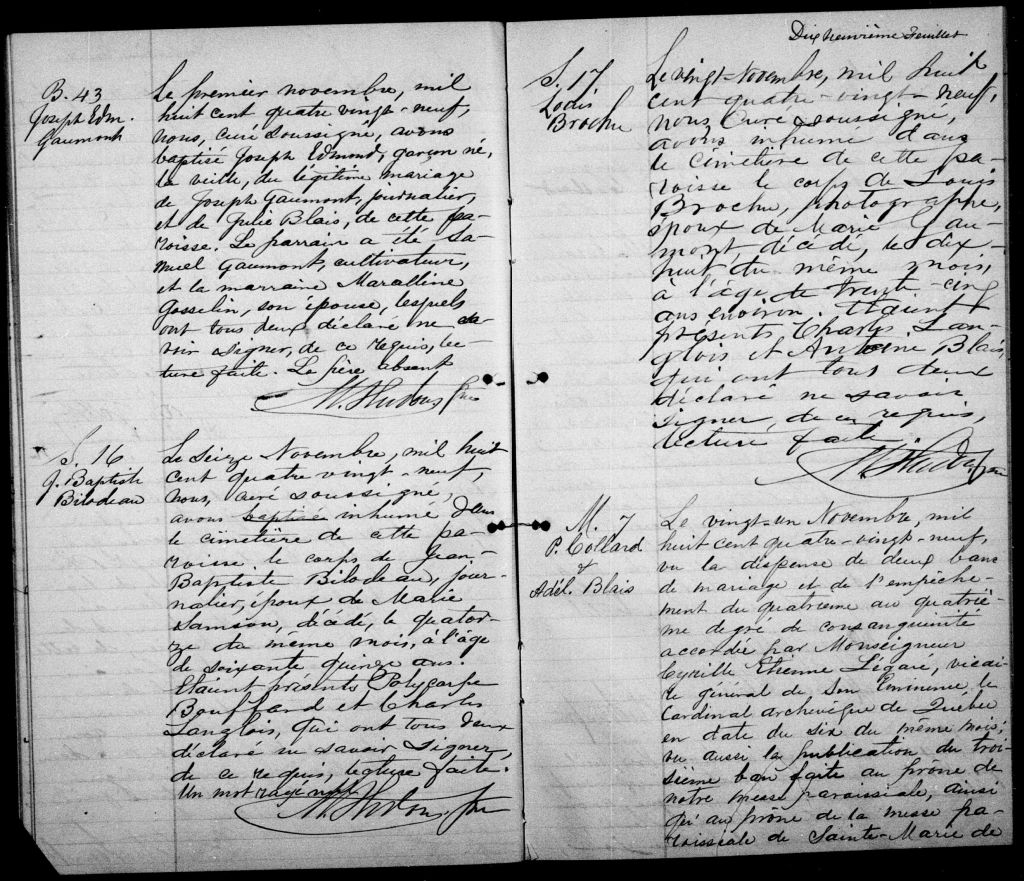 B. 43
Joseph Edm.
Gaumont
Le premier novembre, mil
huit cent quatre vingt-neuf,
nous, curé soussigné, avons
baptisé Joseph Edmond, garçon né,
la veille, du légitime mariage
de Joseph Gaumont, journalier,
et de Julie Blais, de cette pa-
roisse. Le parrain a été Sa-
muel Gaumont, cultivateur,
et la marraine Marcelline
Gosselin, son épouse, lesquels
ont tous deux déclaré ne sa-
voir signer, de ce requis, lec-
ture faite. Le père absent
S. 16
J. Baptiste
Bilodeau
Le seize Novembre, mil huit
cent quatre-vingt-neuf,
nous, curé soussigné,
avons baptisé inhumé dans
le cimetière de cette pa-
roisse le corps de Jean-
Baptiste Bilodeau, jour-
nalier, époux de Marie
Samson, décédé, le quator-
ze du même mois, à l'âge
de soixante quinze ans.
Etaient présents Polycarpe
Bouffard et Charles
Langlois, qui ont tous deux
déclaré ne savoir signer,
de ce requis, lecture faite.
Un mot rayé nul
Dix neuvième Feuillet
S. 17
Louis
Brochu
Le vingt-Novembre, mil huit
cent quatre-vingt-neuf,
nous Curé soussigné,
avons inhumé dans
le cimetière de cette pa-
roisse le corps de Louis
Brochu, photographe,
époux de Marie Gau-
mont, décédé, le dix
huit du même mois,
à l'âge de trente-cinq
ans environ. Etaient
présents Charles Lan-
glois et Antoine Blais,
qui ont tous deux
déclaré ne savoir
signer, de ce requis,
lecture faite.
M. 7
P. Collard
&
Adél. Blais
Le vingt-un Novembre, mil
huit cent quatre-vingt-neuf,
vu la dispense de deux bans
de mariage et de l'empêche-
ment du quatrième au quatriè-
me degré de consanguinité
accordée par Monseigneur
Cyrille Etienne Légaré, vicai-
re général de Son Eminence le
Cardinal archevêque de Québec
en date du six du même mois;
vu aussi la publication du troi-
sième ban faite au prône de
notre messe paroissiale, ainsi
qu'au prône de la messe pa-
roissiale de Sainte-Marie de